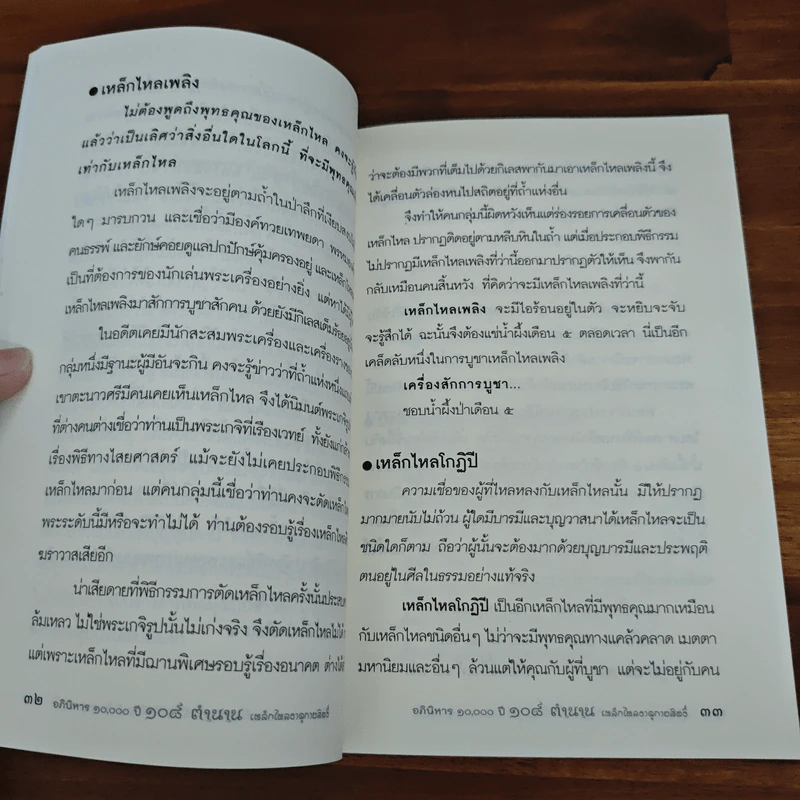 ● เหล็กไหลเพลิง
ไม่ต้องพูดถึงพุทธคุณของเหล็กไหล คงจะรู้
แล้วว่าเป็นเลิศว่าสิ่งอื่นใดในโลกนี้ ที่จะมีพุทธคุณ
เท่ากับเหล็กไหล
เหล็กไหลเพลิงจะอยู่ตามถ้ำในป่าลึกที่เงียบสงบ
ใดๆ มารบกวน และเชื่อว่ามีองค์ทวยเทพยดา พรหม
คนธรรพ์ และยักษ์คอยดูแลปกปักษ์คุ้มครองอยู่ และเหล็กไหล
เป็นที่ต้องการของนักเล่นพระเครื่องอย่างยิ่ง แต่หาได้มี
เหล็กไหลเพลิงมาสักการบูชาสักคน ด้วยยังมีกิเลสเต็มร้อย
ในอดีตเคยมีนักสะสมพระเครื่องและเครื่องราง
กลุ่มหนึ่งมีฐานะผู้มีอันจะกิน คงจะรู้ข่าวว่าที่ถ้ำแห่งหนึ่ง
เขาตะนาวศรีมีคนเคยเห็นเหล็กไหล จึงได้นิมนต์พระเกจิ
ที่ต่างคนต่างเชื่อว่าท่านเป็นพระเกจิที่เรืองเวทย์ ทั้งยังแก่กล้า
เรื่องพิธีทางไสยศาสตร์ แม้จะยังไม่เคยประกอบพิธีกรรม
เหล็กไหลมาก่อน แต่คนกลุ่มนี้เชื่อว่าท่านคงจะตัดเหล็กไหล
พระระดับนี้มีหรือจะทำไม่ได้ ท่านต้องรอบรู้เรื่องเหล็กไหล
ฆราวาสเสียอีก
น่าเสียดายที่พิธีกรรมการตัดเหล็กไหลครั้งนั้นประสบ
ล้มเหลว ไม่ใช่พระเกจิรูปนั้นไม่เก่งจริง จึงตัดเหล็กไหลไม่ได้
แต่เพราะเหล็กไหลที่มีฌานพิเศษรอบรู้เรื่องอนาคต ต่าง
๓๒ อภินิหาร ๑๐,๐๐๐ ปี ๑๐๘ ตำนาน เหล็กไหลธาตุกายสิทธิ์
ว่าจะต้องมีพวกที่เต็มไปด้วยกิเลสพากันมาเอาเหล็กไหลเพลิงนี้ จึง
ได้เคลื่อนตัวล่องหนไปสถิตอยู่ที่ถ้ำแห่งอื่น
จึงทำให้คนกลุ่มนี้ผิดหวังเห็นแต่ร่องรอยการเคลื่อนตัวของ
เหล็กไหล ปรากฏติดอยู่ตามหลืบหินในถ้ำ แต่เมื่อประกอบพิธีกรรม
ไม่ปรากฏมีเหล็กไหลเพลิงที่ว่านี้ออกมาปรากฏตัวให้เห็น จึงพากัน
กลับเหมือนคนสิ้นหวัง ที่คิดว่าจะมีเหล็กไหลเพลิงที่ว่านี้
เหล็กไหลเพลิง จะมีไอร้อนอยู่ในตัว จะหยิบจะจับ
จะรู้สึกได้ ฉะนั้นจึงต้องแช่น้ำผึ้งเดือน ๕ ตลอดเวลา นี่เป็นอีก
เคล็ดลับหนึ่งในการบูชาเหล็กไหลเพลิง
เครื่องสักการบูชา...
ชอบน้ำผึ้งป่าเดือน ๕
● เหล็กไหลโกฏิปี
ความเชื่อของผู้ที่ไหลหลงกับเหล็กไหลนั้น มีให้ปรากฏ
มากมายนับไม่ถ้วน ผู้ใดมีบารมีและบุญวาสนาได้เหล็กไหลจะเป็น
ชนิดใดก็ตาม ถือว่าผู้นั้นจะต้องมากด้วยบุญบารมีและประพฤติ
ตนอยู่ในศีลในธรรมอย่างแท้จริง
เหล็กไหลโกฏิปี เป็นอีกเหล็กไหลที่มีพุทธคุณมากเหมือน
กับเหล็กไหลชนิดอื่นๆ ไม่ว่าจะมีพุทธคุณทางแคล้วคลาด เมตตา
มหานิยมและอื่นๆ ล้วนแต่ให้คุณกับผู้ที่บูชา แต่จะไม่อยู่กับคน
อภินิหาร ๑๐,๐๐๐ ปี ๑๐๘ ตำนาน เหล็กไหลธาตุกายสิทธิ์ ๓๓